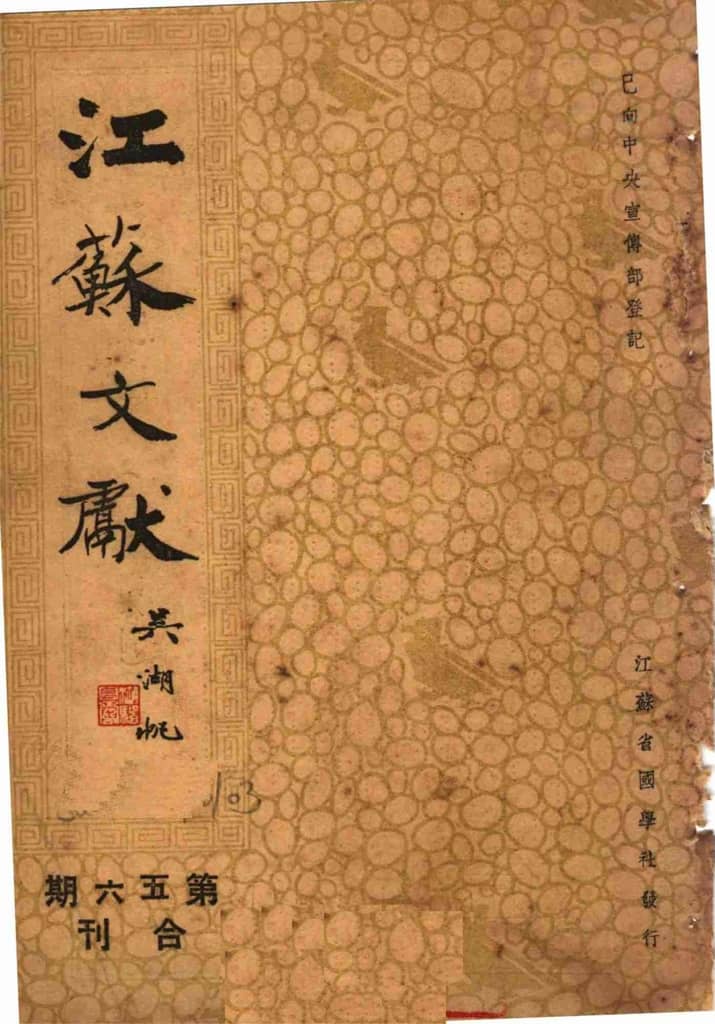 已向中央宣傳部登記
江蘇省國學社發行
江蘇文獻
吳湖帆
103
第五六期
合刊